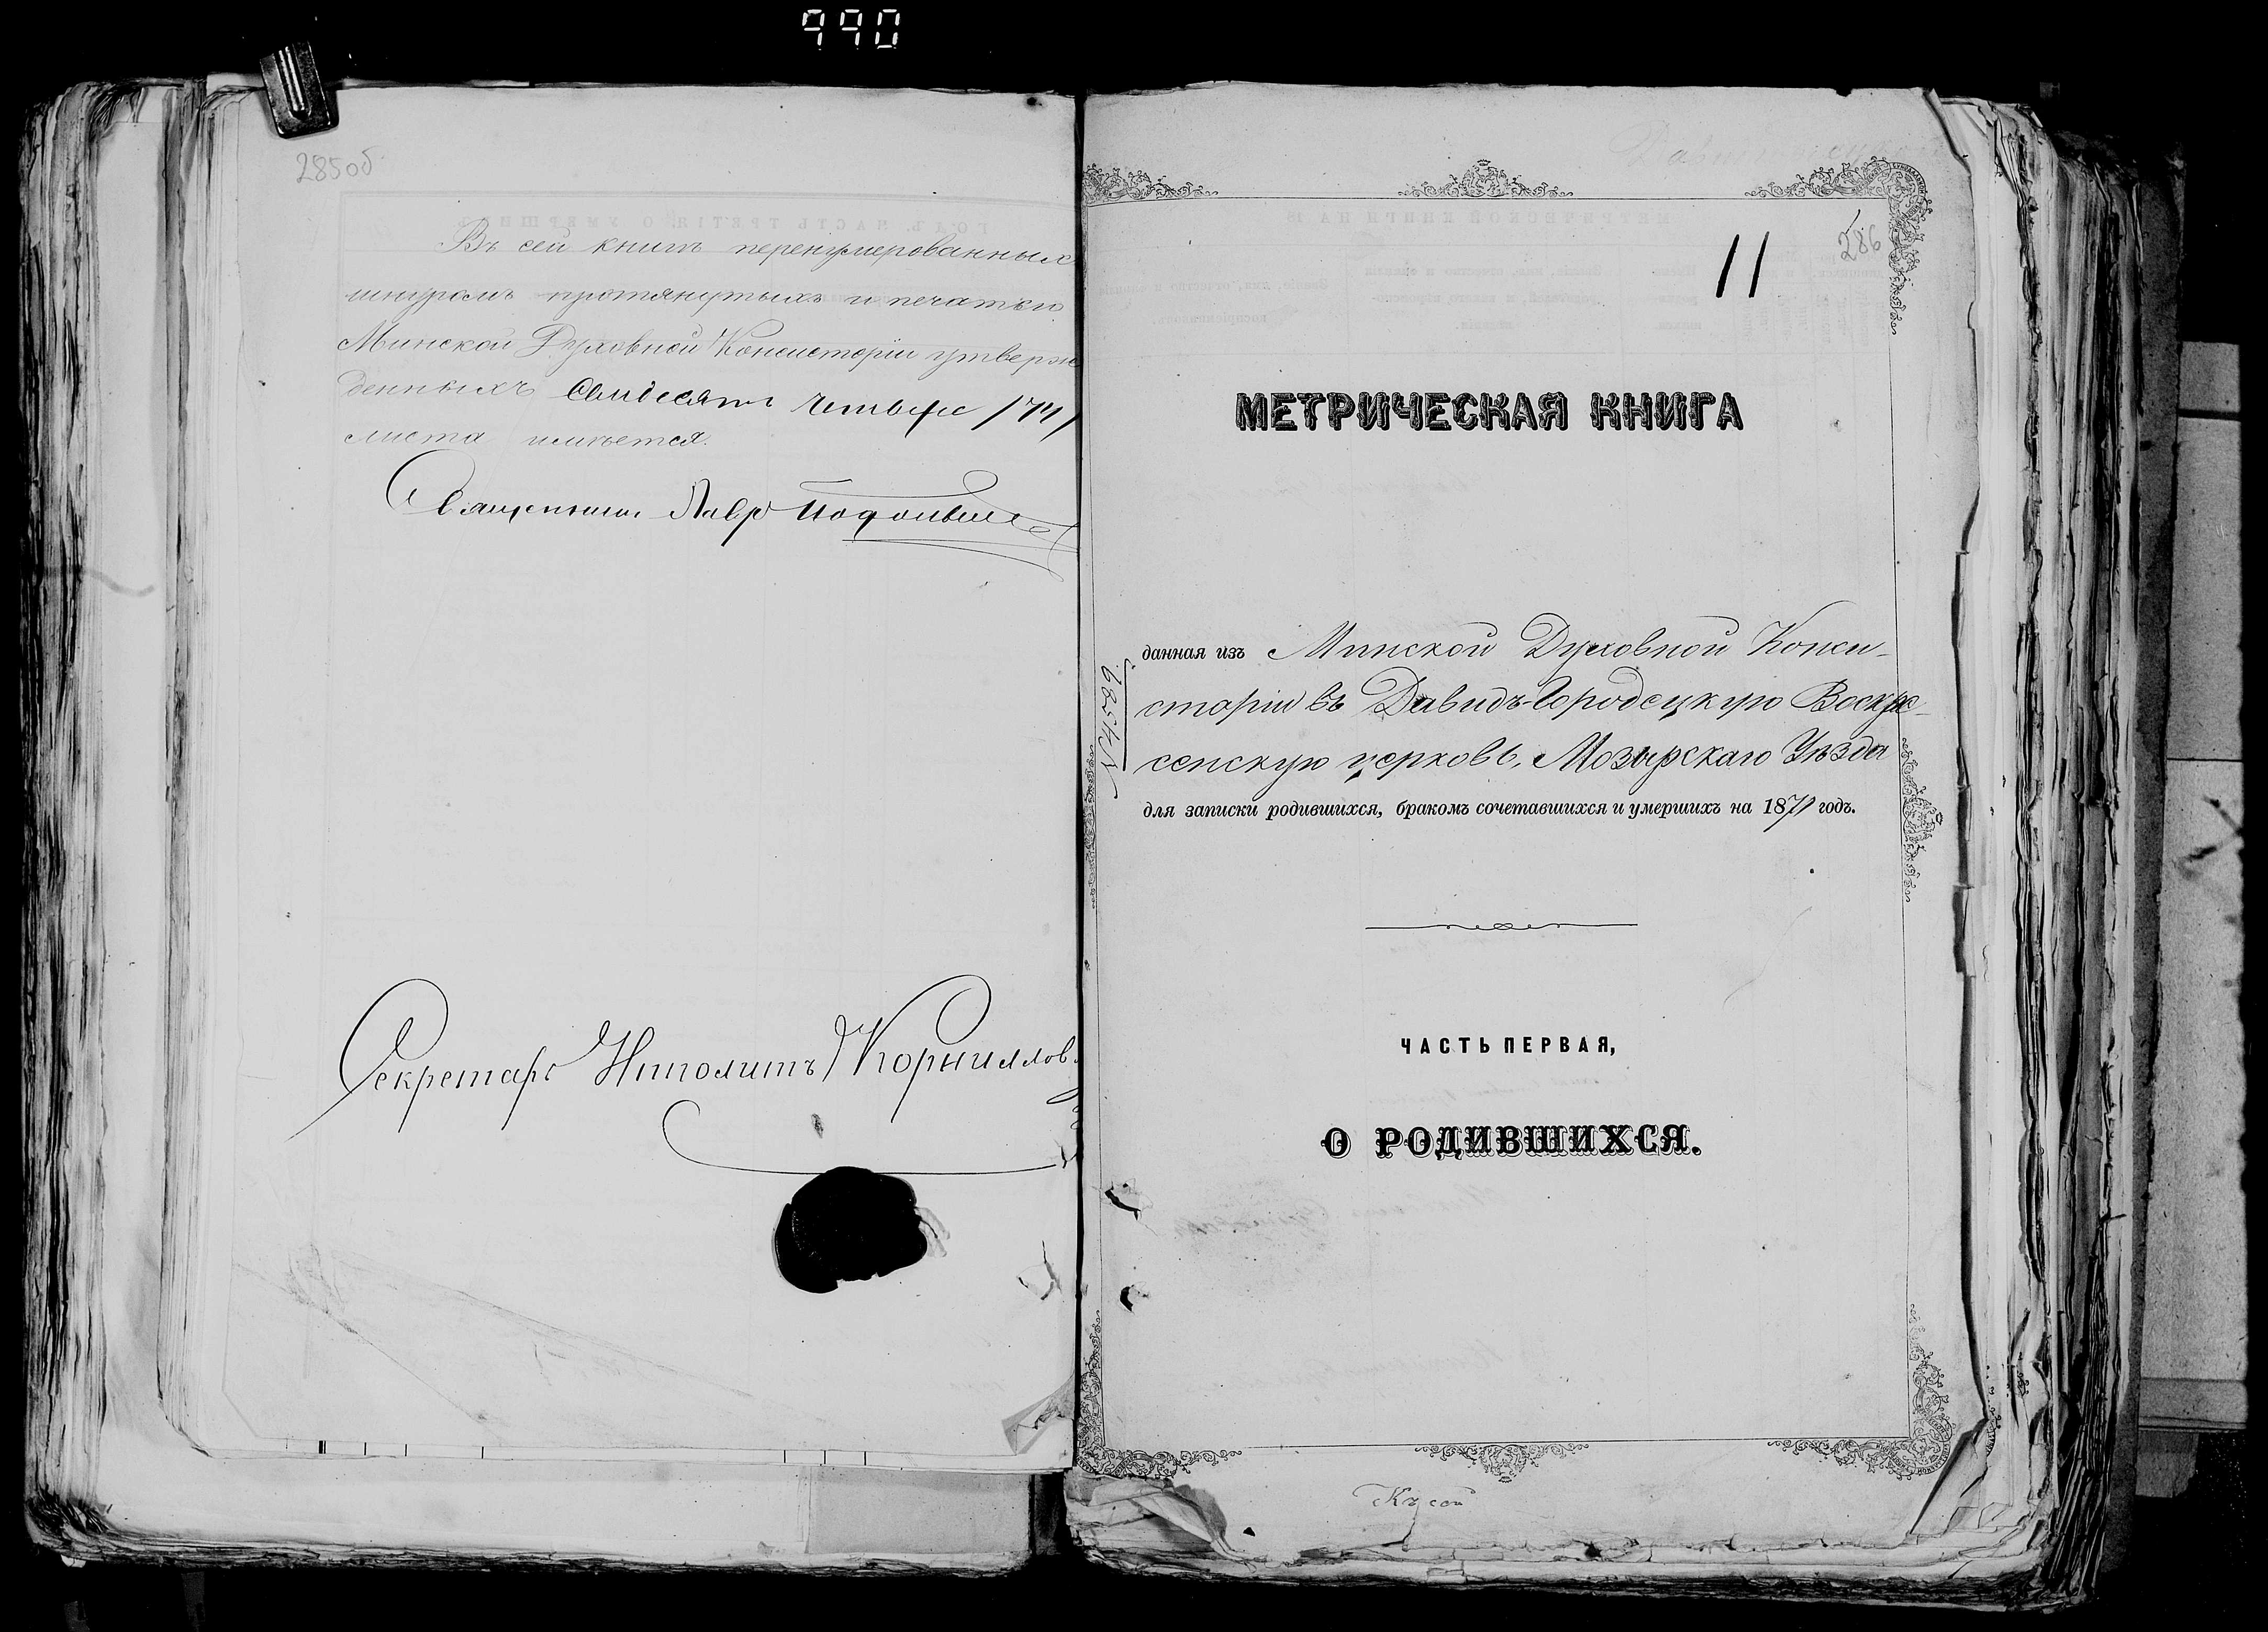 990
285об
Въ сей книгѣ перенумерованныхъ
шнуромъ протянутыхъ и печатью
Минской Духовной Консисторіи утверж
денныхъ Семьдесятъ четыре /74/
листа имѣется.
Священникъ Лавр
Секретарь Ипполитъ Корниллов
286
11
МЕТРИЧЕСКАЯ КНИГА
данная изъ Минской Духовной Конси-
сторіи въ Давидъ-Городецкую Воскре-
сенскую церковь, Мозырскаго Уѣзда
для записки родившихся, бракомъ сочетавшихся и умершихъ на 1871 годъ.
№ 4589.
ЧАСТЬ ПЕРВАЯ,
О РОДИВШИХСЯ.
Къ сей